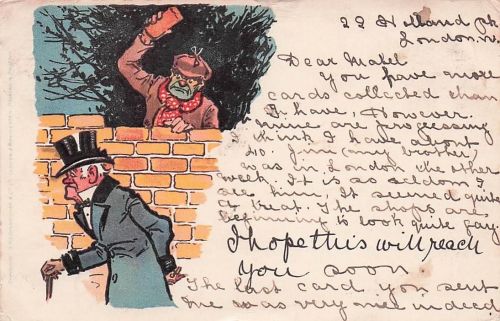 22 Holland pk
London. W.
Dear Mabel
You have more
cards collected than
I have, However
mine are progressing
think I have about
40. Jim (my brother)
was in London the other
week. It is so seldom I
see him, It seemed quite
a treat. The shops are
beginning to look quite gay.
I hope this will reach
you soon
The last card you sent
me was very nice indeed